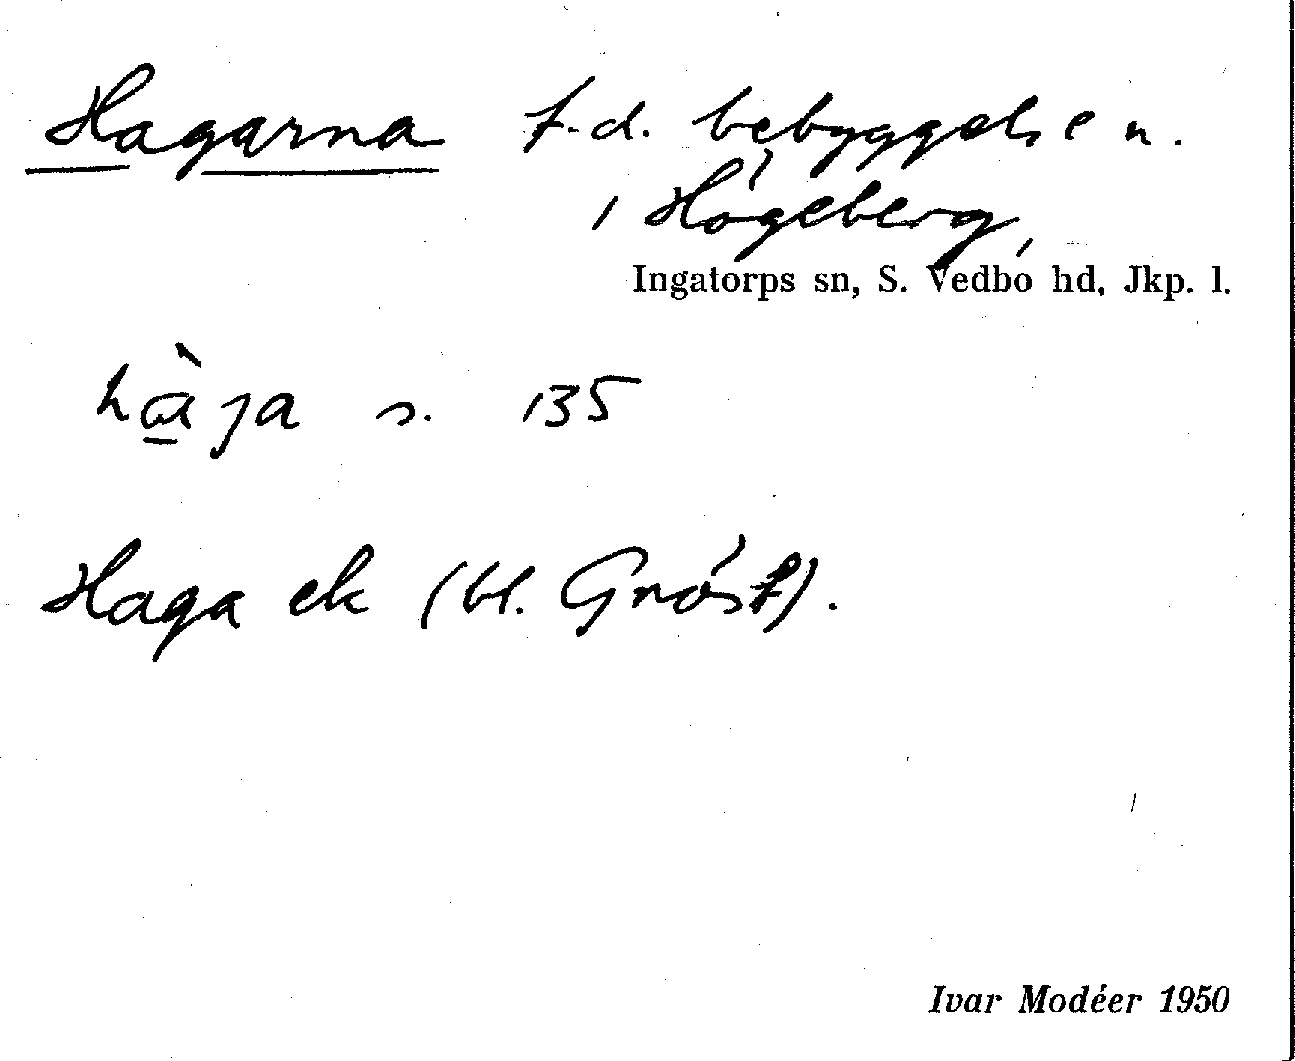 Hagarna f.d. bebyggelse n.
i Högeberg,
Ingatorps sn, S. Vedbo hd, Jkp. l.
hàja s. 135
Haga ek (bl.
Ivar Modéer 1950